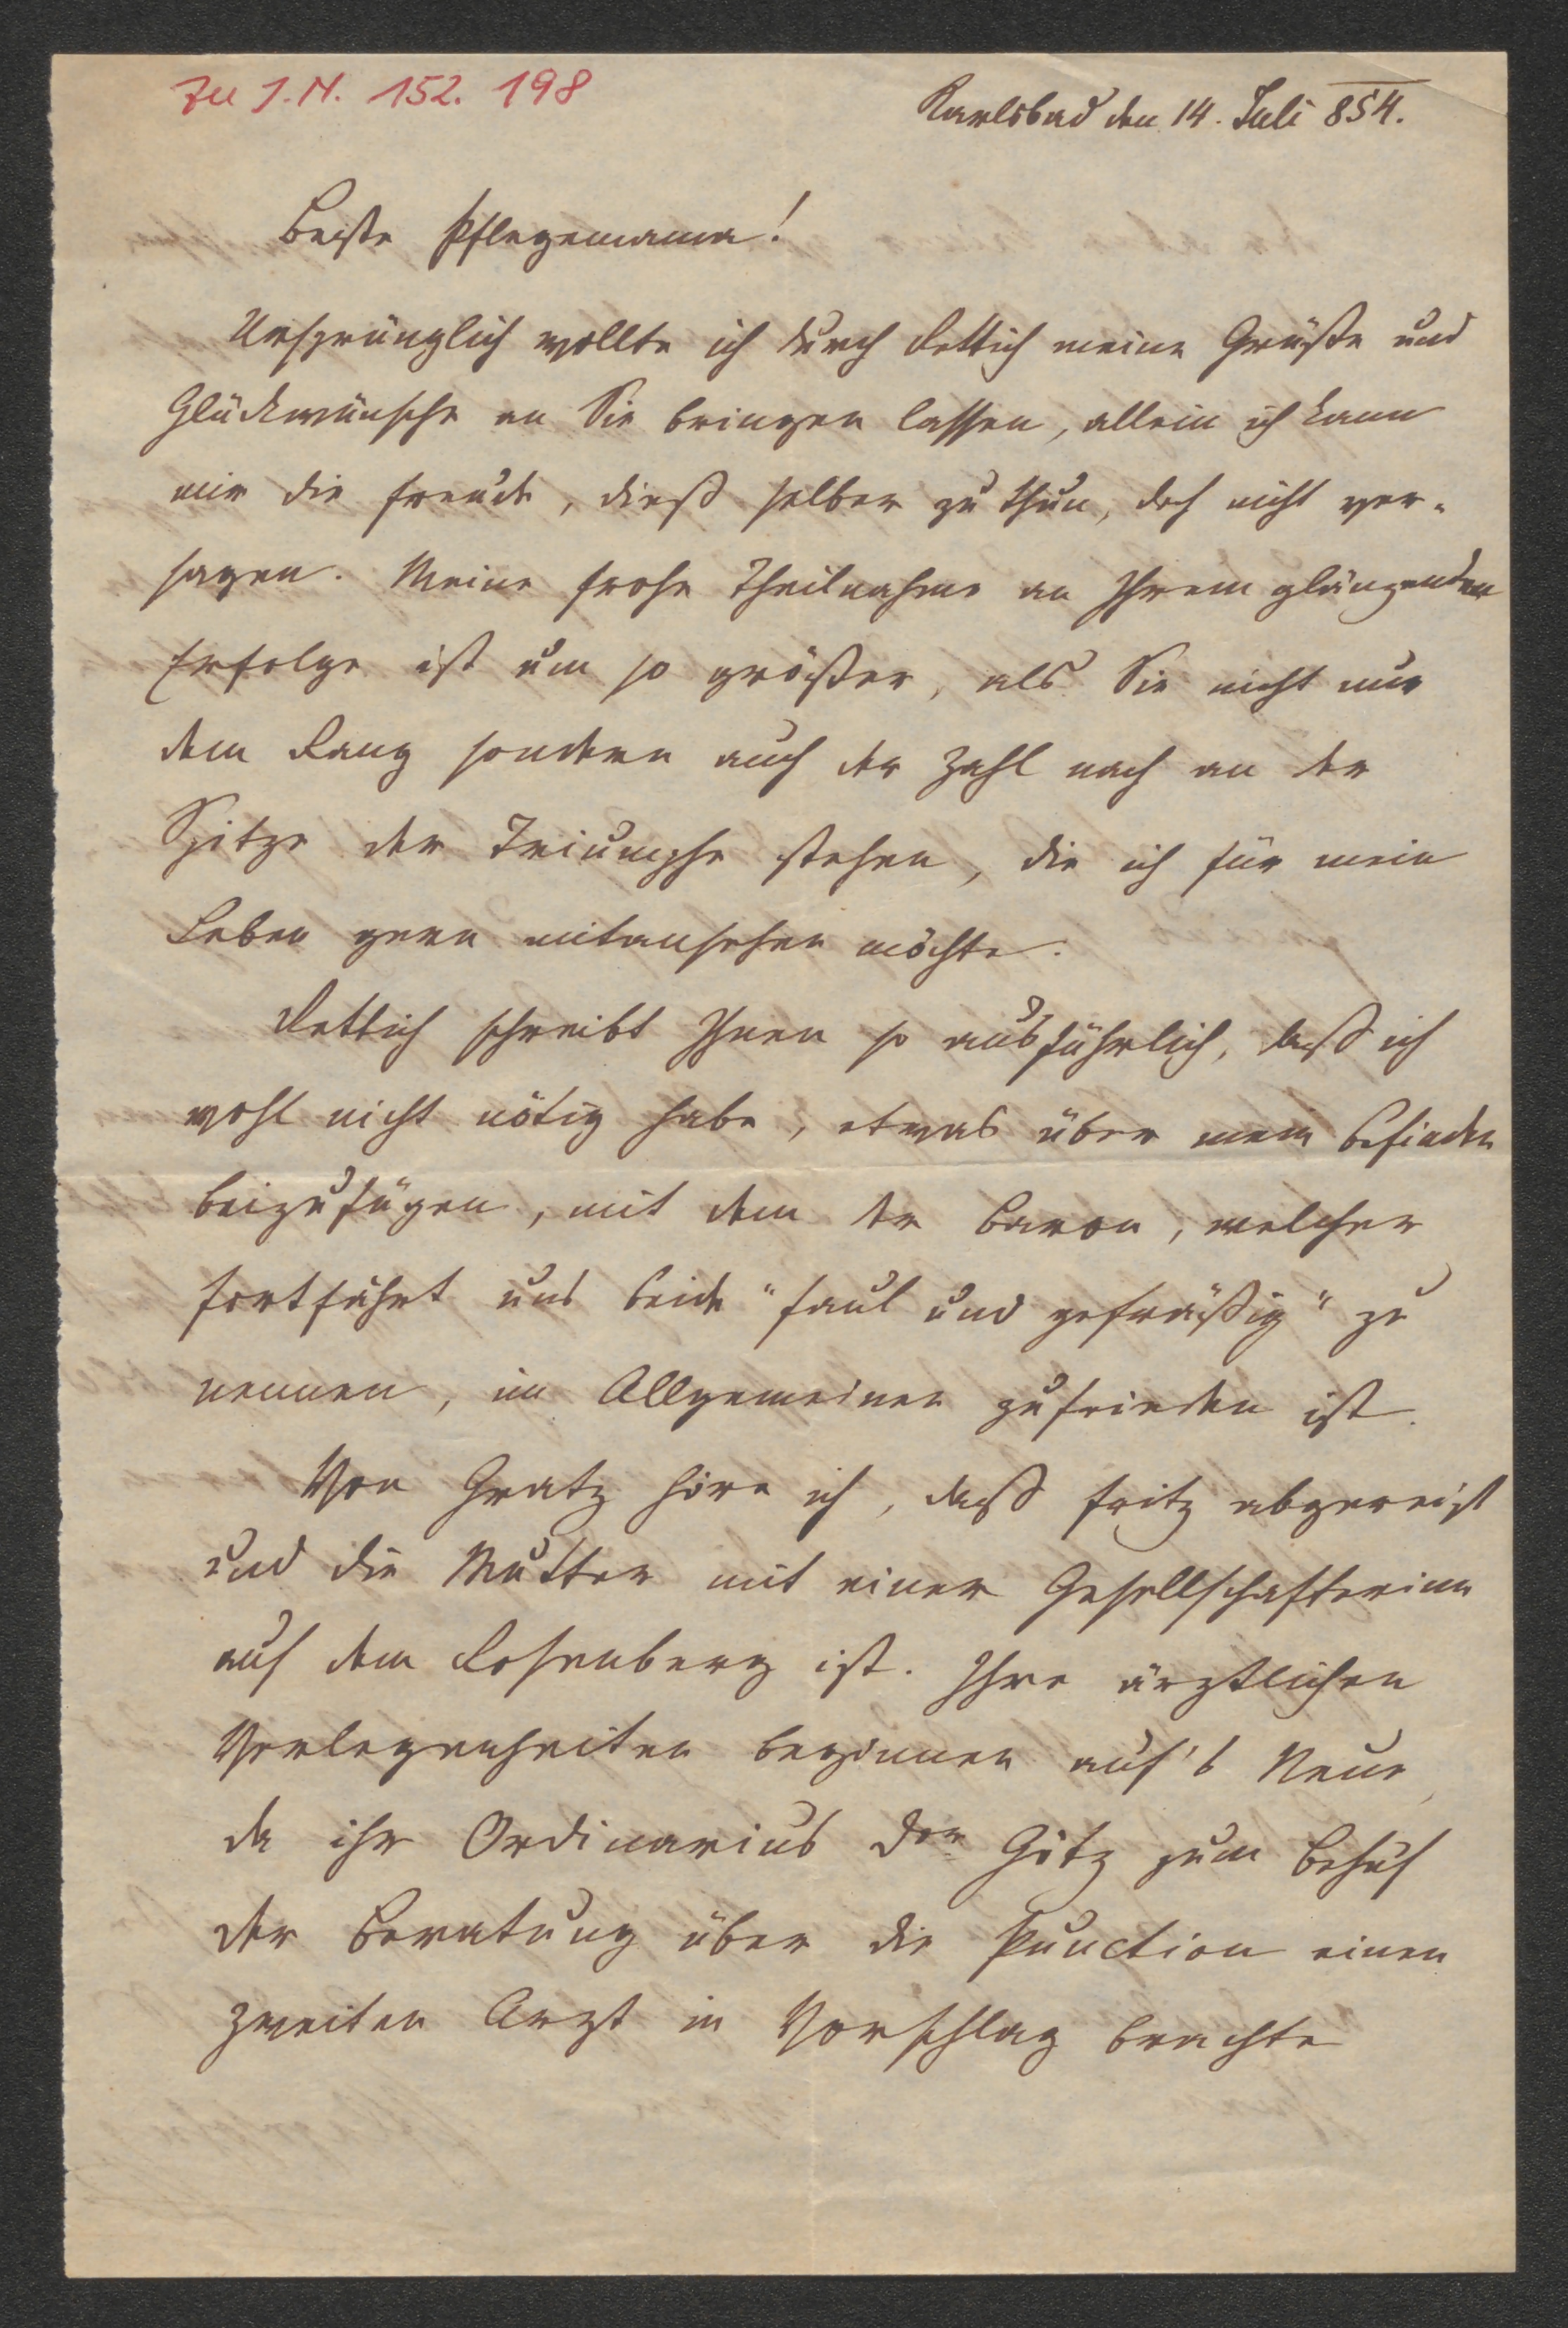 Zu I.N. 152.198
Karlsbad den 14. Juli 854.
Beste Pflegemama!
Ursprünglich wollte ich durch Rettich meine Grüße und
Glückwünsche an Sie bringen lassen, allein ich kann
mir die Freude, dieß selber zu thun, doch nicht ver-
sagen. Meine frohe Theilnahme an Ihrem glänzenden
Erfolge ist um so größer, als Sie nicht nur
dem Rang sondern auch der Zahl nach an der
Spitze der Triumphe stehen, die ich für mein
Leben gern mitansehen möchte.
Rettich schreibt Ihnen so ausführlich, daß ich
wohl nicht nötig habe, etwas über mein Befinden
beizufügen, mit dem der Baron, welcher
fortfährt uns beide "faul und gefräßig" zu
nennen, im Allgemeinen zufrieden ist.
Von Gratz höre ich, daß Fritz abgereist
und die Mutter mit einer Gesellschafterinn
auf dem Rosenberg ist. Ihre ärztlichen
Verlegenheiten beginnen auf's Neue,
da ihr Ordinarius Dor Götz zum Behuf
der Beratung über die Punction einen
zweiten Arzt in Vorschlag brachte